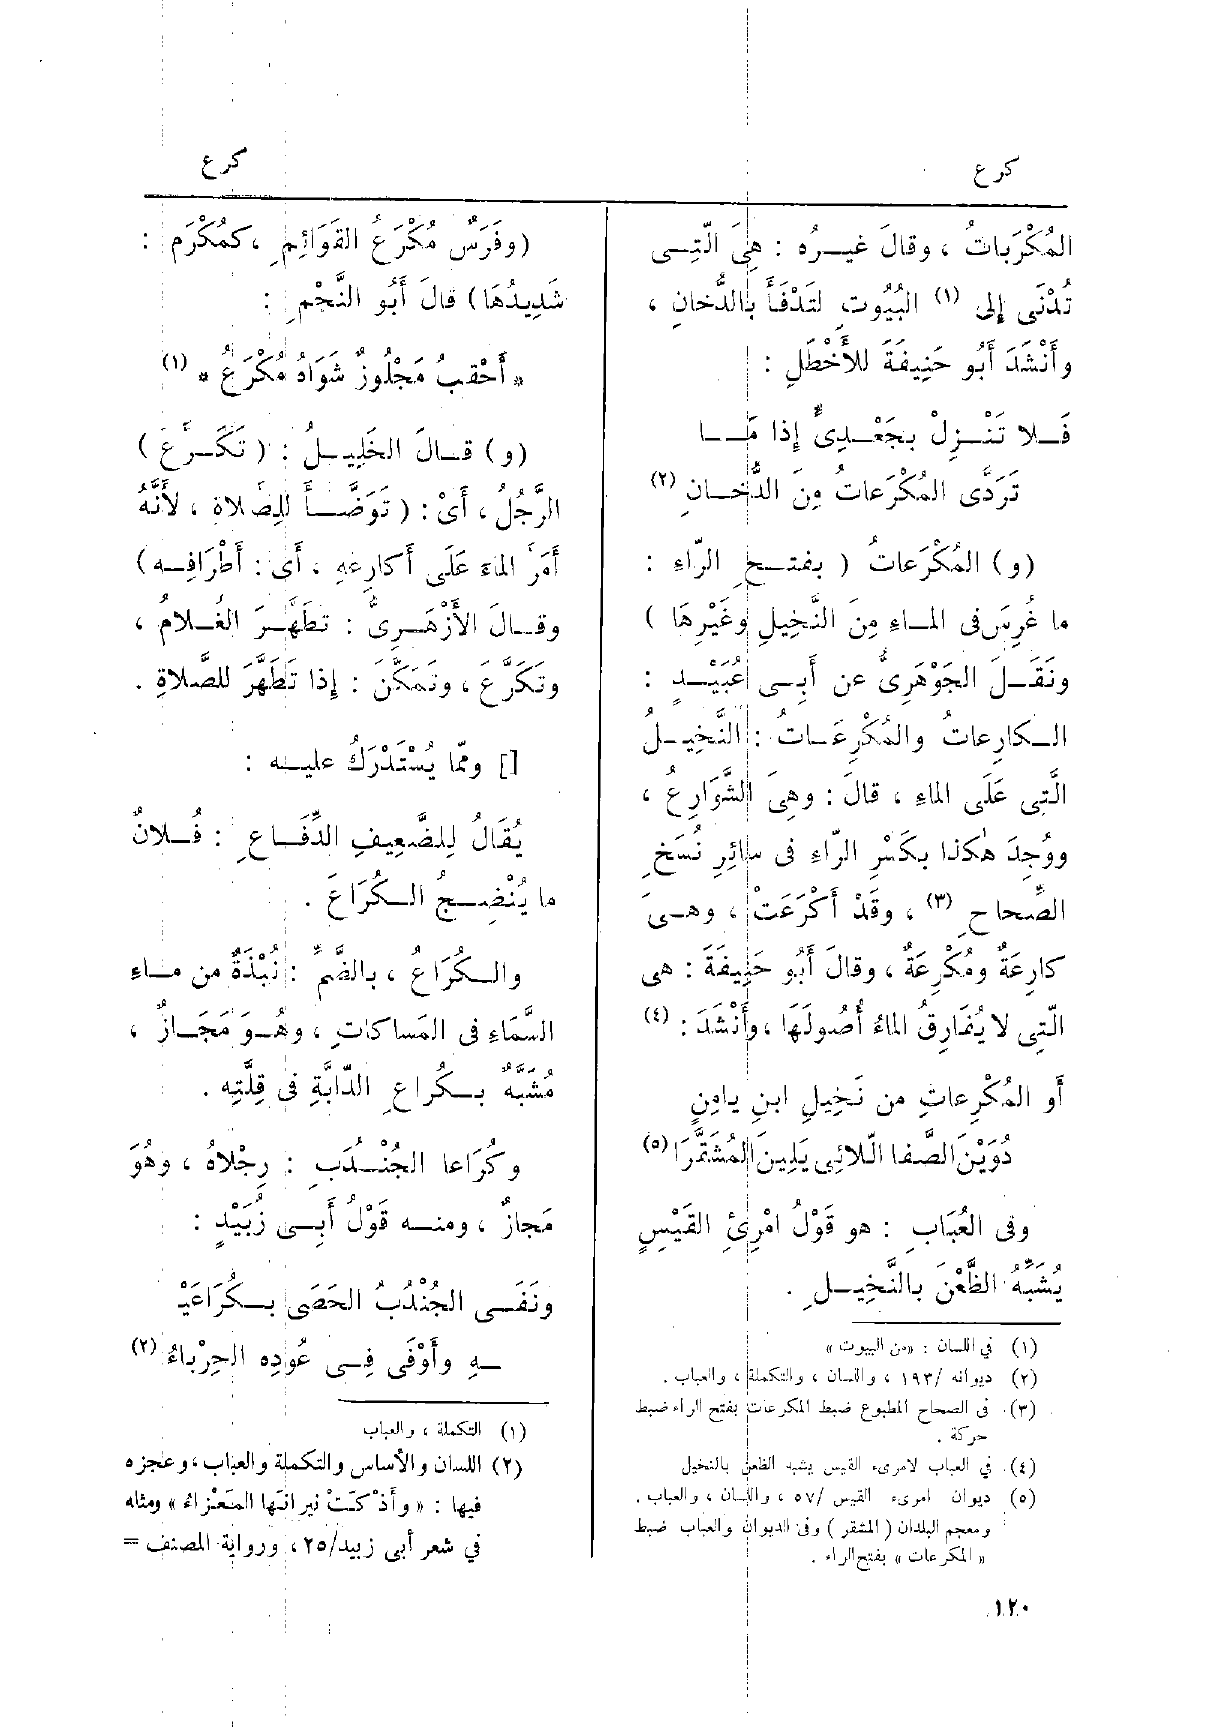 كرع
المُكْرَباتُ ، وقالَ غيرُه : هِىَ الَّتِى
تُدْنَى إلى (١) البُيُوتِ لتَدْفَأَ بالدُّخانِ ،
وأَنْشَدَ أَبُو حَنِيفَةَ للأَخْطَلِ :
فَلا تَنْزِلْ بجَعْدِىٍّ إذا مَا
تَرَدَّى المُكْرَعاتُ مِنَ الدُّخانِ (٢)
(و) المُكْرَعاتُ ( بفتحِ الرّاءِ :
ما غُرِسَ فى الماءِ مِنَ النَّخِيلِ وغَيْرِهَا )
ونَقَلَ الجَوْهَرِىُّ عن أَبِى عُبَيْدٍ :
الكارِعاتُ والمُكْرِعَاتُ : النَّخِيلُ
الَّتِى عَلَى الماءِ ، قالَ : وهِىَ الشَّوَارِعُ ،
ووُجِدَ هٰكذا بكَسْرِ الرّاءِ فى سائِرِ نُسَخِ
الصِّحاحِ (٣) ، وقَدْ أَكْرَعَتْ ، وهِىَ
كارِعَةٌ ومُكْرِعَةٌ ، وقالَ أَبُو حَنِيفَةَ : هى
الَّتِى لا يُفارِقُ الماءُ أُصُولَهَا ، وأَنْشَدَ : (٤)
أَو المُكْرِعاتِ من نَخِيلِ ابنِ يامِنٍ
دُوَيْنَ الصَّفا الَّلائِى يَلِينَ المُشَقَّرَا (٥)
وفى العُبَابِ : هو قَوْلُ امْرِئِ القَيْسِ
يُشَبِّهُ الظُّعْنَ بالنَّخِيلِ .
(١) في اللسان : «من البيوت »
(٢) ديوانه /١٩٣ ، واللسان ، والتكملة ، والعباب .
(٣) فى الصحاح المطبوع ضبط المكرعات بفتح الراء ضبط
حركة .
(٤) في العباب لامرىء القيس يشبه الظعن بالنخيل
(٥) ديوان امرىء القيس /٥٧ ، واللسان ، والعباب .
ومعجم البلدان ( المشقر ) وفى الديوان والعباب ضبط
« المكرعات » بفتح الراء .
١٢٠
كرع
(وفَرَسٌ مُكْرَعُ القَوَائِمِ ، كمُكْرَمٍ :
شَدِيدُهَا ) قالَ أَبُو النَّجْمِ :
* أَحْقَبُ مَجْلُوزٌ شَوَاهُ مُكْرَعُ * (١)
(و) قالَ الخَلِيلُ : ( تَكَرَّعَ )
الرَّجُلُ ، أَىْ : ( تَوَضَّأَ للِصَّلاةِ ، لأَنَّهُ
أَمَرَّ الماءَ عَلَى أكارِعِهِ ، أَى : أَطْرَافِه )
وقالَ الأَزْهَرِىُّ : تطَهَّرَ الغُلامُ ،
وتَكَرَّعَ ، وتَمَكَّنَ : إذا تَطَهَّرَ للصَّلاةِ .
[] ومّما يُسْتَدْرَكُ عليه :
يُقالُ لِلضَّعِيفِ الدِّفَاعِ : فُلانٌ
ما يُنْضِجُ الكُرَاعَ .
والكُرَاعُ ، بالضَّمِّ : نُبْذَةٌ من ماءِ
السَّمَاءِ فى المَساكاتِ ، وهُوَ مَجَازٌ ،
مُشَبَّهٌ بكُراعِ الدّابَّةِ فى قِلَّتِه .
وكُرَاعا الجُنْدَبِ : رِجْلاهُ ، وهُوَ
مَجازٌ ، ومنه قَوْلُ أَبِى زُبَيْدٍ :
ونَفَى الجُنْدَبُ الحَصَى بكُرَاعَيْ
ـهِ وأَوْفَى فِى عُودِه الحِرْباءُ (٢)
(١) التكملة ، والعباب
(٢) اللسان والأساس والتكملة والعباب ، وعجزه
فيها : « وأذْكَتْ نيرانَها المَعْزاءُ » ومثله
في شعر أبى زبيد/٢٥ ، ورواية المصنف =